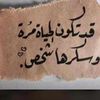 قد تكون الحياة مُرة
وسكرها شخص.!